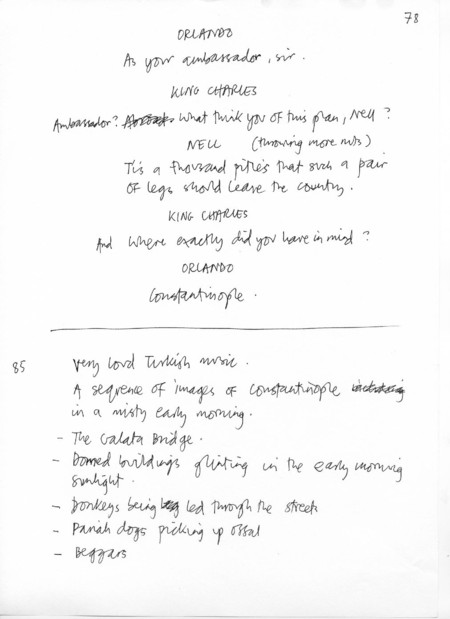 78
ORLANDO
As your ambassador, sir.
KING CHARLES
Ambassador? What think you of this plan, Nell?
NELL (throwing more nuts)
Tis a thousand pities that such a pair
of legs should leave the country.
KING CHARLES
And where exactly did you have in mind?
ORLANDO
Constantinople.
85 Very loud Turkish music.
A sequence of images of Constantinople
in a misty early morning.
- The Galata Bridge.
- Domed buildings glinting in the early morning
sunlight.
- Donkeys being led through the streets
- Pariah dogs picking up offal
- Beggars